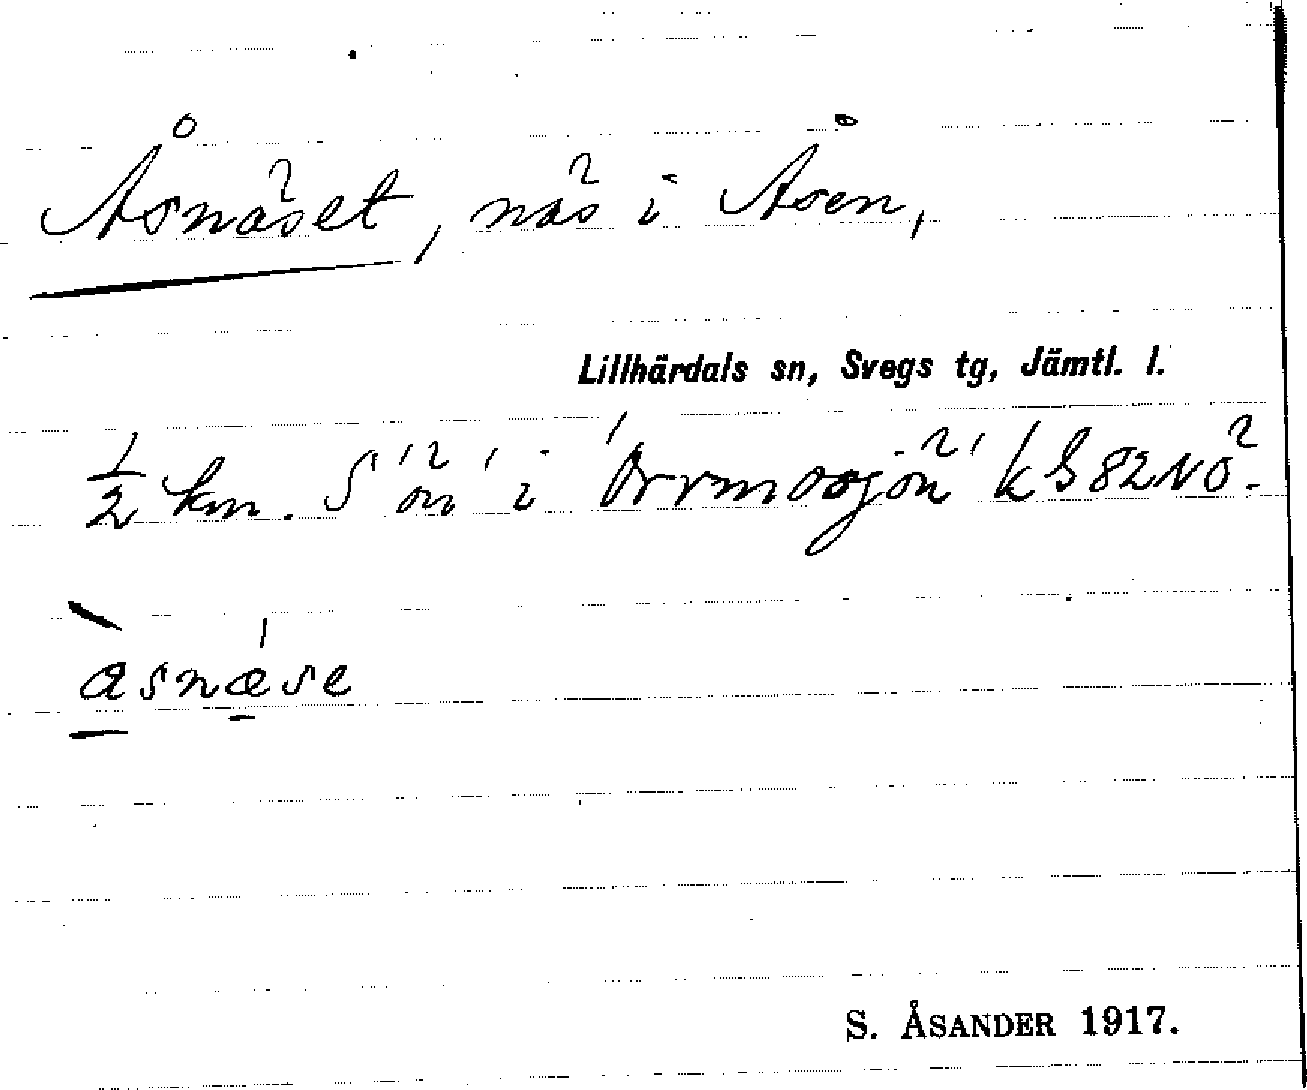 Åsnäset, näs i Åsen,
Lillhärdals sn, Svegs tg, Jämtl. l.
1/2 km. S 'ön' i 'Orrmosjön' k G 82 NÖ.
åsnæse
S. ÅSANDER 1917.